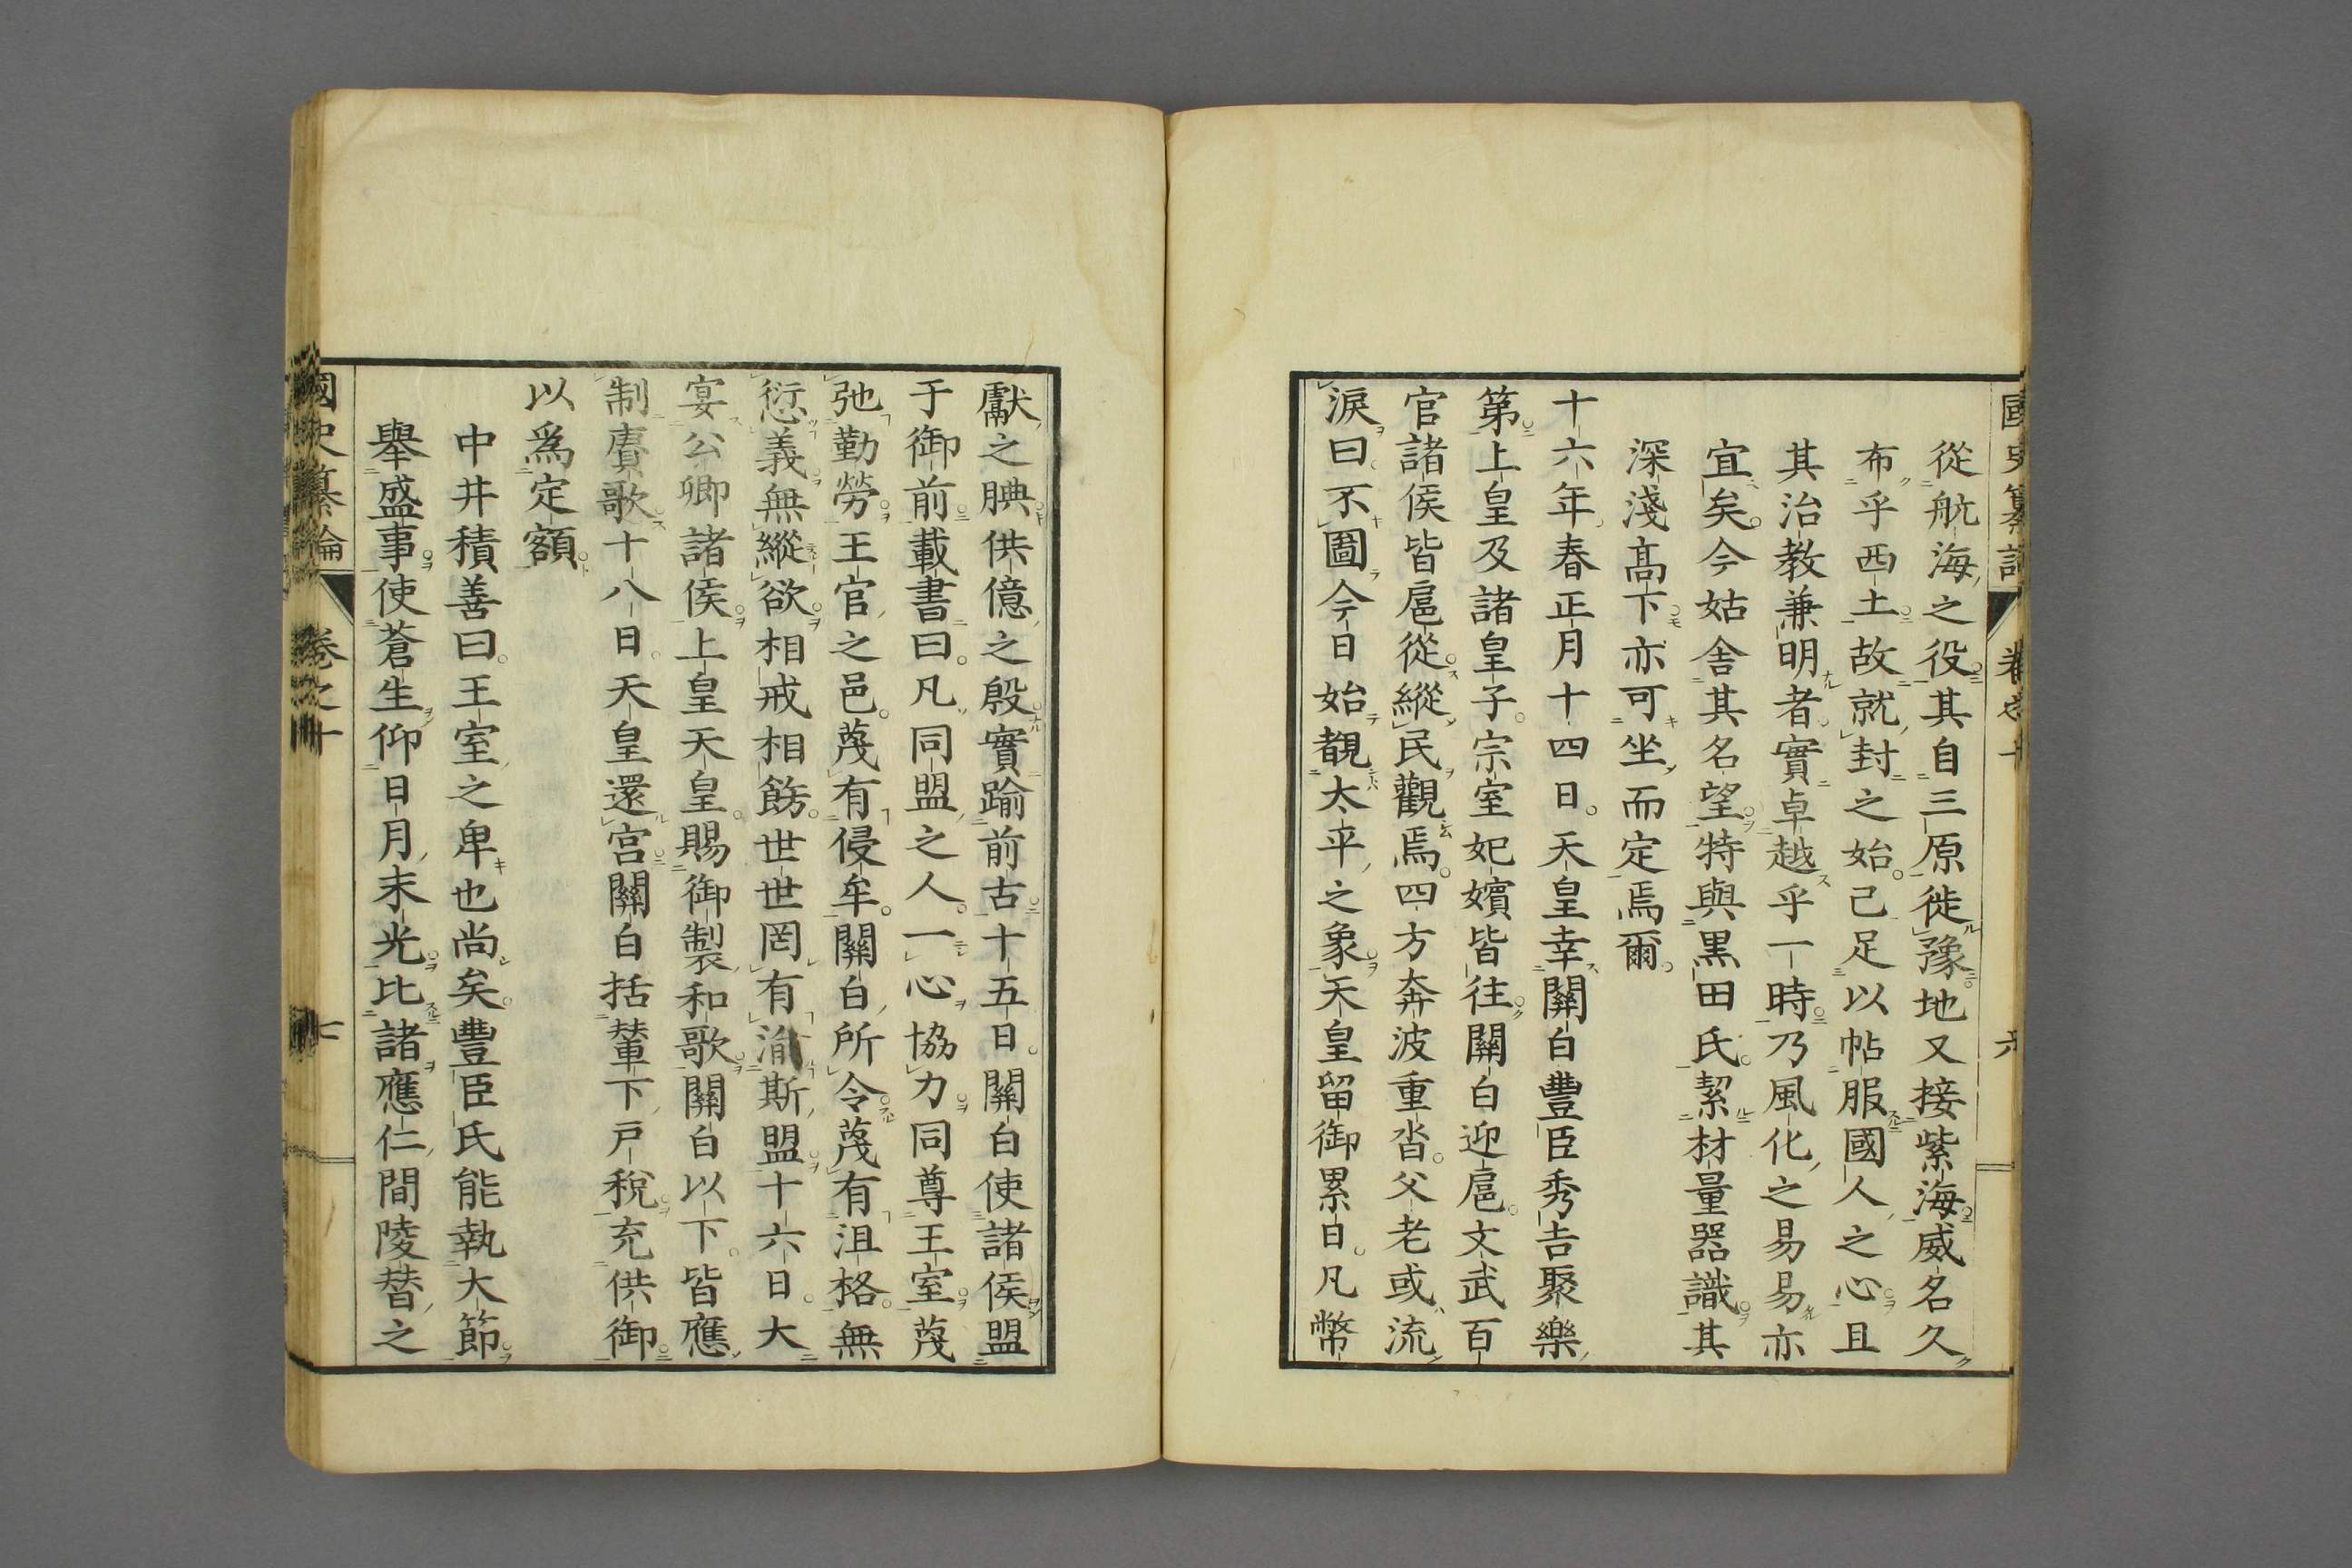 從航海之役其自三原徙豫地又接紫海威名久
布乎西土故就封之始己足以帖服國人之心且
其治教兼明者實卓越乎一時乃風化之易易亦
宜矣今姑舍其名望特與黒田氏絜材量器識其
深淺髙下亦可坐而定焉爾
十六年春正月十四日天皇幸關白豐臣秀吉聚樂
第上皇及諸皇子宗室妃嬪皆往關白迎扈文武百
官諸侯皆扈從縱民觀焉四方奔波重沓父老或流
淚曰不圖今日始覩太平之象天皇留御累日凡幣
獻之腆供億之殷實踰前古十五日關白使諸侯盟
于御前載書曰凡同盟之人一心協力同尊王室蔑
弛勤勞王官之邑蔑有侵牟關白所令蔑有沮格無
愆義無縱欲相戒相飭世世罔有渝斯盟十六日大
宴公卿諸侯上皇天皇賜御製和歌關白以下皆應
制賡歌十八日天皇還宮關白括輦下戸稅充供御
以爲定額
中井積善曰王室之卑也尚矣豐臣氏能執大節
舉盛事使蒼生仰日月末光比諸應仁間陵替之
國史纂論 卷之十 七